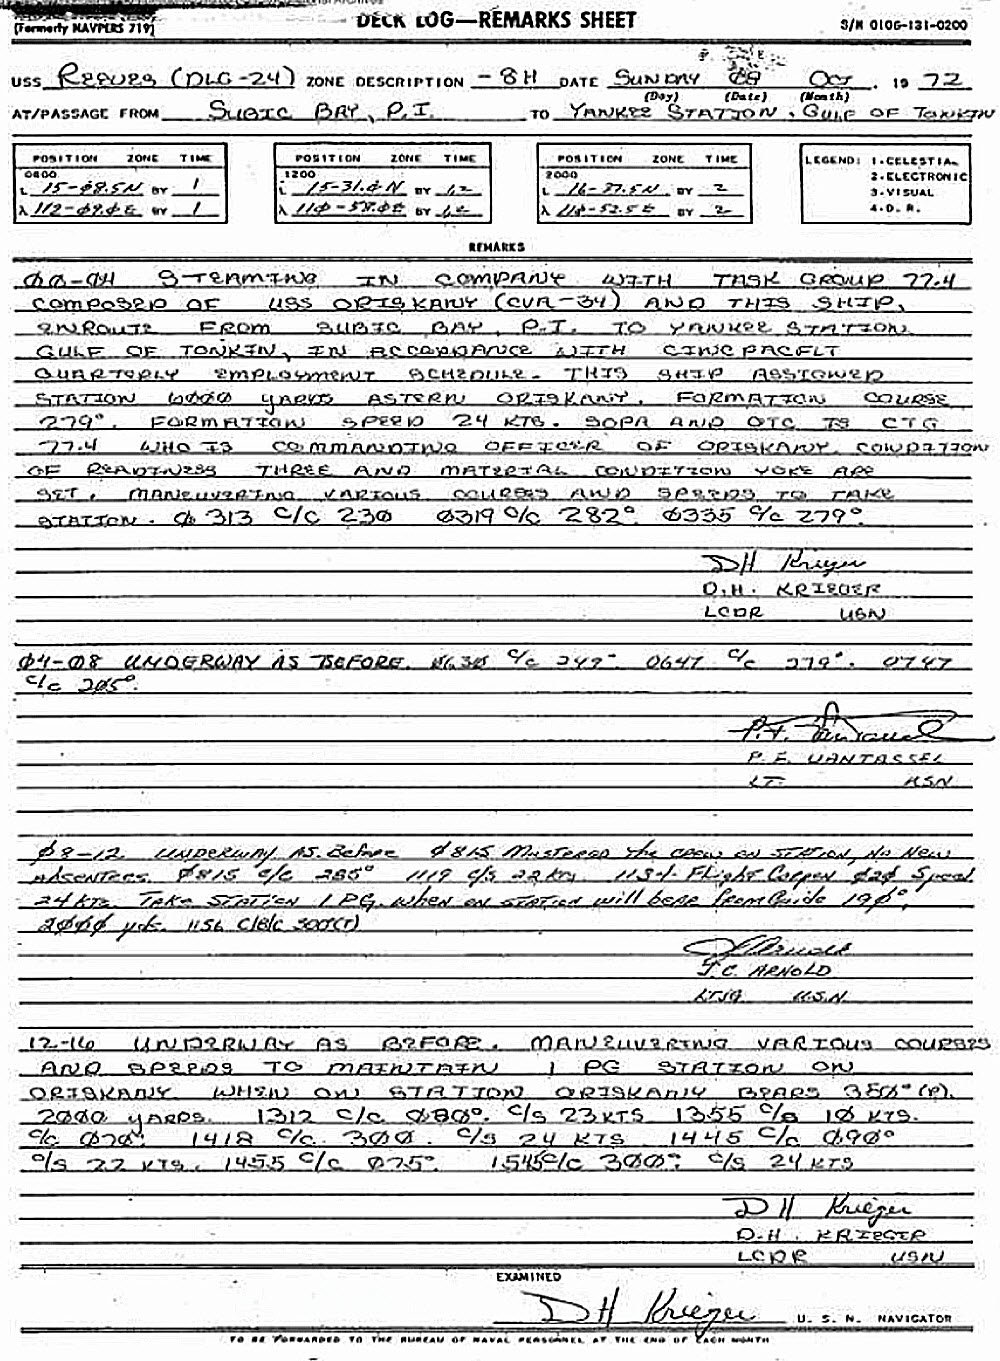 DECK LOG—REMARKS SHEET
(Formerly NAVPERS 719)
S/N 0106-131-0200
USS REEVES (DLG-24) ZONE DESCRIPTION -8H DATE SUNDAY Ø8 OCT. 19 72
(Day) (Date) (Month)
AT/PASSAGE FROM SUBIC BAY, P.I. TO YANKEE STATION, GULF OF TONKIN
POSITION ZONE TIME
0800
L 15-Ø8.5N BY 1
λ 112-Ø9.ØE BY 1
POSITION ZONE TIME
1200
L 15-31.ØN BY 1,2
λ 11Ø-58.ØE BY 1,2
POSITION ZONE TIME
2000
L 16-27.5N BY 2
λ 11Ø-52.5E BY 2
LEGEND: 1-CELESTIAL
2-ELECTRONIC
3-VISUAL
4-D. R.
REMARKS
ØØ-Ø4 STEAMING IN COMPANY WITH TASK GROUP 77.4
COMPOSED OF USS ORISKANY (CVA-34) AND THIS SHIP,
ENROUTE FROM SUBIC BAY, P.I. TO YANKEE STATION
GULF OF TONKIN, IN ACCORDANCE WITH CINCPACFLT
QUARTERLY EMPLOYMENT SCHEDULE. THIS SHIP ASSIGNED
STATION 6ØØØ YARDS ASTERN ORISKANY. FORMATION COURSE
279°. FORMATION SPEED 24 KTS. SOPA AND OTC IS CTG
77.4 WHO IS COMMANDING OFFICER OF ORISKANY. CONDITION
OF READINESS THREE AND MATERIAL CONDITION YOKE ARE
SET. MANEUVERING VARIOUS COURSES AND SPEEDS TO TAKE
STATION. Ø313 C/C 23Ø Ø319 C/C 282° Ø335 C/C 279°.
DH Krieger
D.H. KRIEGER
LCDR USN
Ø4-Ø8 UNDERWAY AS BEFORE. Ø63Ø C/C 249° 0647 C/C 279°. 0747
C/C 285°.
P.F. VanTassel
P.F. VANTASSEL
LT. USN
Ø8-12 UNDERWAY AS Before Ø815 Mustered the crew on STATION, No New
Absentees. Ø815 C/C 285° 1119 C/S 22 Kts 1134 Flight Corpen Ø2Ø Speed
24 KTS. Take Station 1 P.G. when on station will bear from Guide 19Ø°,
2ØØØ yds. 1156 C/B/C 300(T)
Arnold
J.C. ARNOLD
LTJG U.S.N.
12-16 UNDERWAY AS BEFORE. MANEUVERING VARIOUS COURSES
AND SPEEDS TO MAINTAIN 1 PG STATION ON
ORISKANY. WHEN ON STATION ORISKANY BEARS 35Ø°(P).
2ØØØ YARDS. 1312 C/C Ø8Ø°. C/S 23 KTS 1355 C/S 1Ø KTS.
C/C Ø7Ø° 1418 C/C 3ØØ. C/S 24 KTS 1445 C/C Ø9Ø°
C/S 22 KTS. 1455 C/C Ø75° 1545 C/C 3ØØ°. C/S 24 KTS
DH Krieger
D.H. KRIEGER
LCDR USN
EXAMINED
DH Krieger U. S. N. NAVIGATOR
TO BE FORWARDED TO THE BUREAU OF NAVAL PERSONNEL AT THE END OF EACH MONTH